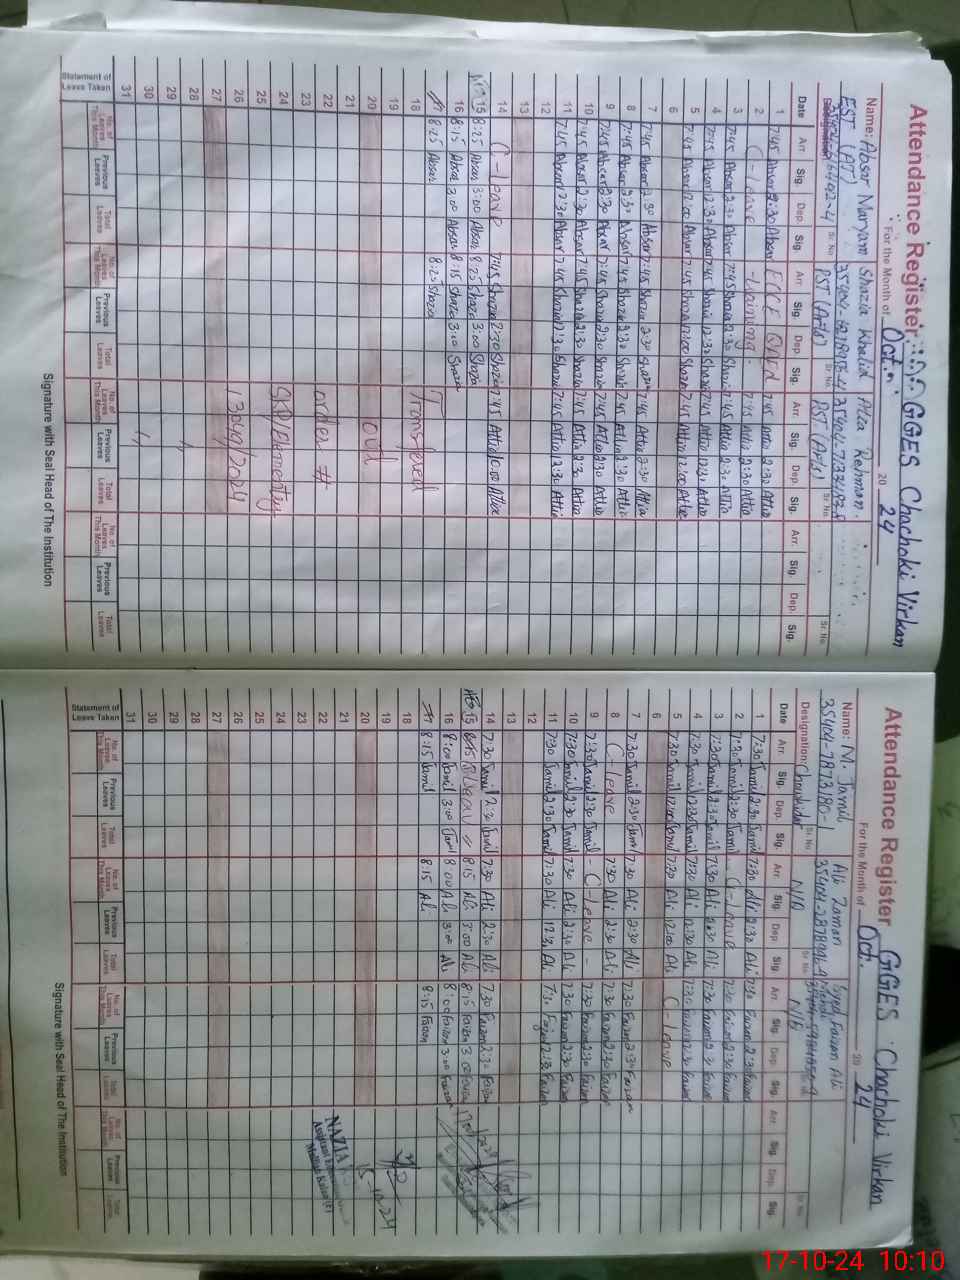 Attendance Register GGES Chachoki Virkan
For the Month of Oct. 20 24
Name: Absar Maryam Shazia Khalid Attia Rehman
EST (AT) PST (Arts) PST (Arts)
Date Arr. Sig. Dep. Sig. Arr. Sig. Dep. Sig. Arr. Sig. Dep. Sig. Arr. Sig. Dep. Sig.
1 7:45 Absar 2:30 Absar 7:45 Attia 2:30 Attia
2 C-leave 7:45 Attia 2:30 Attia
3 7:45 Absar 2:30 Absar 7:45 Shazia 2:30 Shazia 7:45 Attia 2:30 Attia
4 7:45 Absar 12:30 Absar 7:45 Shazia 12:30 Shazia 7:45 Attia 12:30 Attia
5 7:45 Absar 12:00 Absar 7:45 Shazia 12:00 Shazia 7:45 Attia 12:00 Attia
6
7 7:45 Absar 2:30 Absar 7:45 Shazia 2:30 Shazia 7:45 Attia 2:30 Attia
8 7:45 Absar 2:30 Absar 7:45 Shazia 2:30 Shazia 7:45 Attia 2:30 Attia
9 7:45 Absar 2:30 Absar 7:45 Shazia 2:30 Shazia 7:45 Attia 2:30 Attia
10 7:45 Absar 2:30 Absar 7:45 Shazia 2:30 Shazia 7:45 Attia 2:30 Attia
11 7:45 Absar 12:30 Absar 7:45 Shazia 12:30 Shazia 7:45 Attia 12:30 Attia
12
13
14 C-leave 7:45 Shazia 2:30 Shazia 7:45 Attia 10:00 Attia
15 8:25 Absar 3:00 Absar 8:25 Shazia 3:00 Shazia
16 8:15 Absar 3:00 Absar 8:15 Shazia 3:00 Shazia
17 8:25 Absar 8:25 Shazia
18 Transfered
19
20 out
21
22 order #
23
24 SKP/Elementry
25
26 1349/2024
27
28
29
30
31
Statement of Leave Taken No. of Leaves This Month Previous Leaves Total Leaves No. of Leaves This Month Previous Leaves Total Leaves No. of Leaves This Month Previous Leaves Total Leaves No. of Leaves This Month Previous Leaves Total Leaves
Signature with Seal Head of The Institution
Attendance Register GGES Chachoki Virkan
For the Month of Oct. 20 24
Name: M. Jamil Ali Zaman Syed Faizan Ali
35404-7873180-1
Designation: Chowkidar N/Q N/Q
Date Arr. Sig. Dep. Sig. Arr. Sig. Dep. Sig. Arr. Sig. Dep. Sig. Arr. Sig. Dep. Sig.
1 7:30 Jamil 2:30 Jamil 7:30 Ali 2:30 Ali 7:30 Faizan 2:30 Faizan
2 7:30 Jamil 2:30 Jamil - C-leave 7:30 Faizan 2:30 Faizan
3 7:30 Jamil 2:30 Jamil 7:30 Ali 2:30 Ali 7:30 Faizan 2:30 Faizan
4 7:30 Jamil 12:30 Jamil 7:30 Ali 12:30 Ali 7:30 Faizan 12:30 Faizan
5 7:30 Jamil 12:00 Jamil 7:30 Ali 12:00 Ali C-leave
6
7 7:30 Jamil 2:30 Jamil 7:30 Ali 2:30 Ali 7:30 Faizan 2:30 Faizan
8 C-leave 7:30 Ali 2:30 Ali 7:30 Faizan 2:30 Faizan
9 7:30 Jamil 2:30 Jamil - C-leave - 7:30 Faizan 2:30 Faizan
10 7:30 Jamil 2:30 Jamil 7:30 Ali 2:30 Ali 7:30 Faizan 2:30 Faizan
11 7:30 Jamil 12:30 Jamil 7:30 Ali 12:30 Ali 7:30 Faizan 12:30 Faizan
12
13
14 7:30 Jamil 2:30 Jamil 7:30 Ali 2:30 Ali 7:30 Faizan 2:30 Faizan
15 8:15 Ali 3:00 Ali 8:15 Faizan 3:00 Faizan
16 8:00 Jamil 3:00 Jamil 8:00 Ali 3:00 Ali 8:00 Faizan 3:00 Faizan
17 8:15 Jamil 8:15 Ali 8:15 Faizan
18
19
20
21 15-10-24
22
23 NAZIA
24
25
26
27
28
29
30
31
Statement of Leave Taken No. of Leaves This Month Previous Leaves Total Leaves No. of Leaves This Month Previous Leaves Total Leaves No. of Leaves This Month Previous Leaves Total Leaves No. of Leaves This Month Previous Leaves Total Leaves
Signature with Seal Head of The Institution
17-10-24 10:10